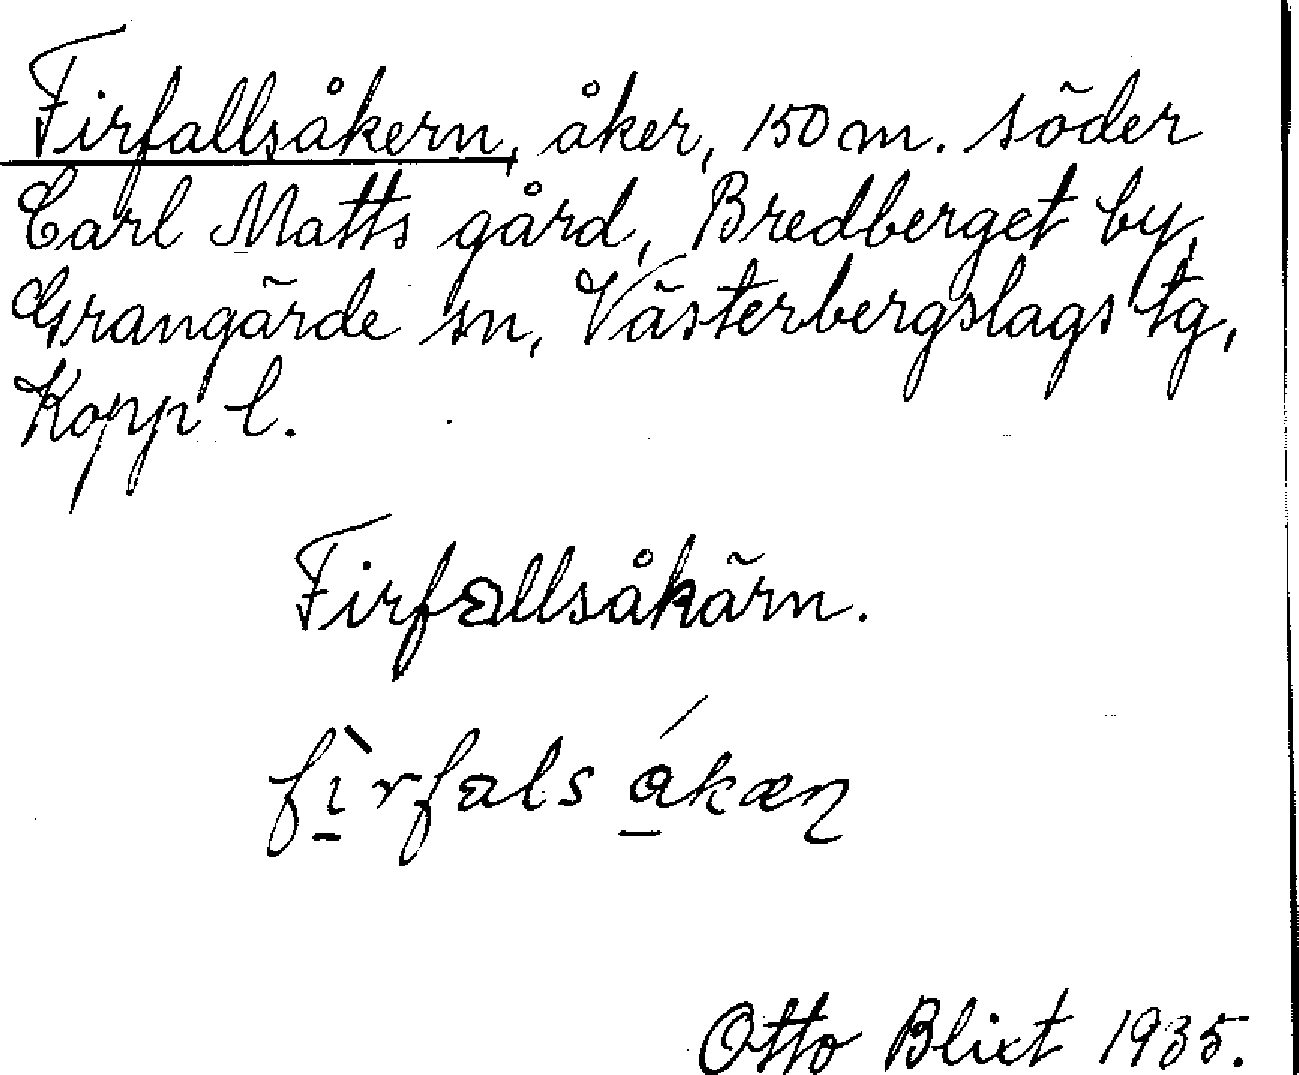 Firfallsåkern, åker, 150 m. söder
Carl Matts gård, Bredberget by,
Grangärde sn, Västerbergslags tg,
Kopp l.
Firfallsåkärn.
fìrfals ákæn
Otto Blixt 1935.